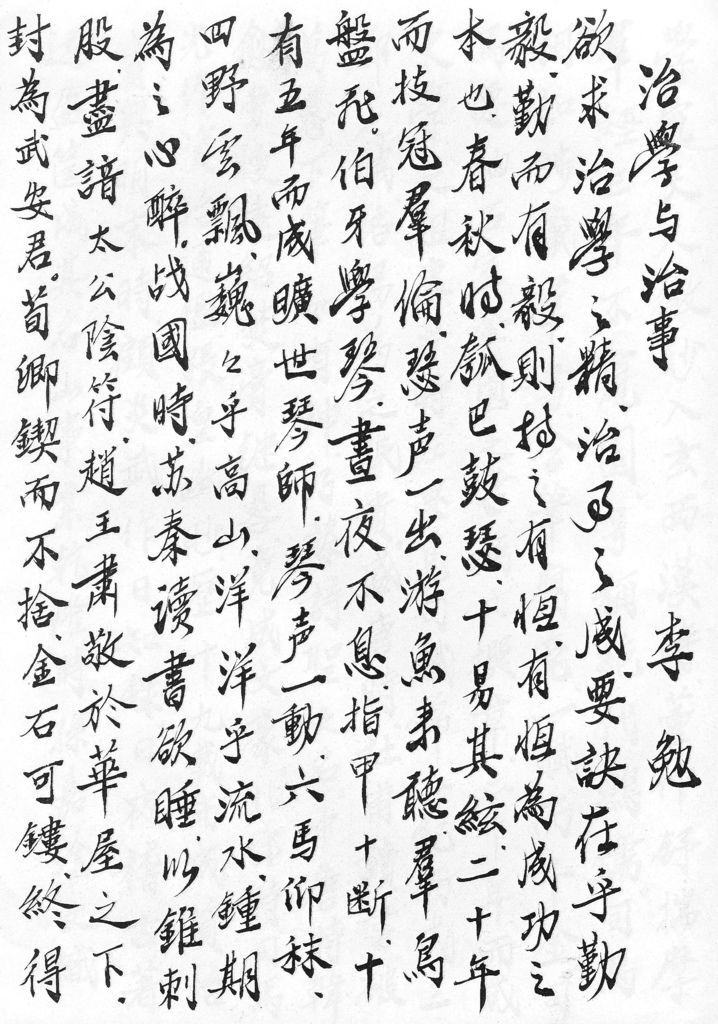 治學与治事 李勉
欲求治學之精、治事之成、要訣在乎勤
毅、勤而有毅、則持之有恆、有恆為成功之
本也、春秋時、瓠巴鼓瑟、十易其絃、二十年
而技冠羣倫、瑟声一出、游魚来聽、羣鳥
盤飛。伯牙學琴、晝夜不息、指甲十断、十
有五年而成曠世琴師、琴声一動、六馬仰秣、
四野雲飄、巍々乎高山、洋洋乎流水、鍾期
為之心醉。战國時、苏秦讀書欲睡、以錐刺
股、盡諳太公陰符、趙王肅敬於華屋之下、
封為武安君。荀卿鍥而不捨、金石可鏤、終得